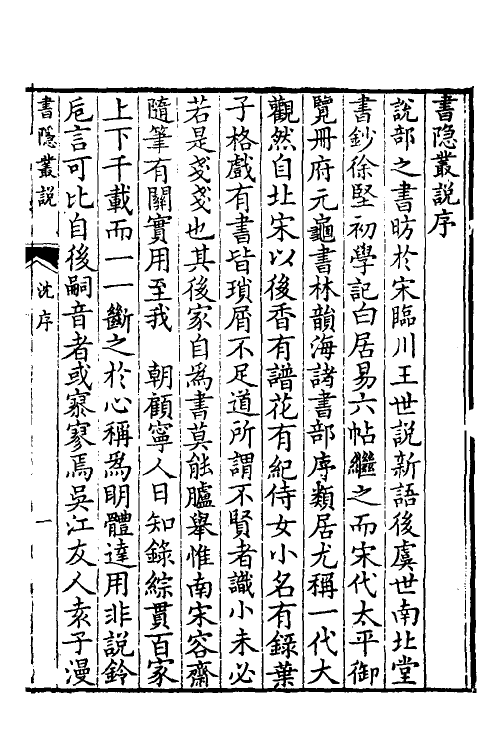 書隱叢說序
說部之書昉於宋臨川王世說新語後虞世南北堂
書鈔徐堅初學記白居易六帖繼之而宋代太平御
覽冊府元龜書林韻海諸書部序類居尤稱一代大
觀然自北宋以後香有譜花有紀侍女小名有錄葉
子格戲有書皆瑣屑不足道所謂不賢者識小未必
若是戔戔也其後家自為書莫能臚舉惟南宋容齋
隨筆有關實用至我　朝顧寧人日知錄綜貫百家
上下千載而一一斷之於心稱為明體達用非說鈴
卮言可比自後嗣音者或寥寥焉吳江友人袁子漫
書隱叢說
沈序
一